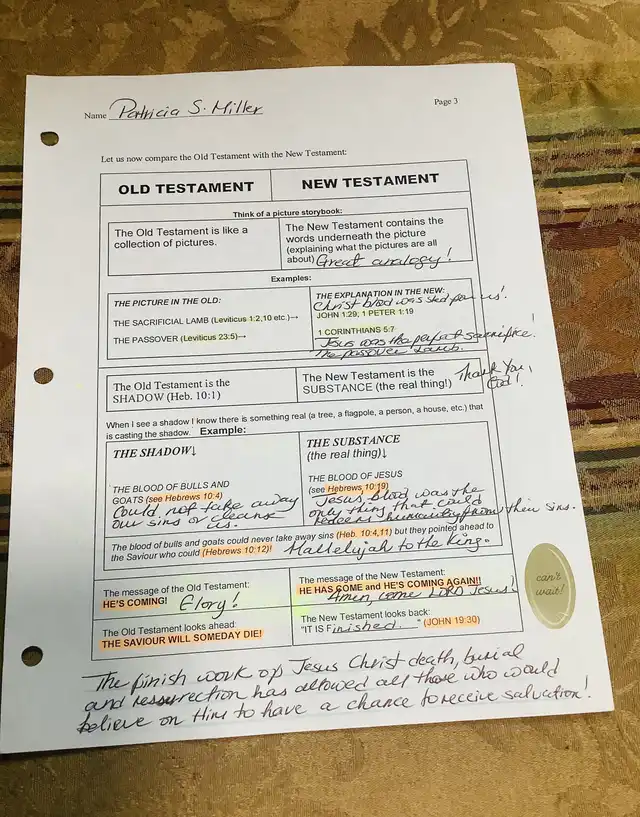 Name Patricia S. Miller
Page 3
Let us now compare the Old Testament with the New Testament:
OLD TESTAMENT
NEW TESTAMENT
Think of a picture storybook:
The Old Testament is like a
collection of pictures.
The New Testament contains the
words underneath the picture
(explaining what the pictures are all
about) Great analogy!
Examples:
THE PICTURE IN THE OLD:
THE SACRIFICIAL LAMB (Leviticus 1:2,10 etc.)→
THE PASSOVER (Leviticus 23:5)→
THE EXPLANATION IN THE NEW:
Christ blod was shed for us!
JOHN 1:29; 1 PETER 1:19
1 CORINTHIANS 5:7
Jesus was the perfect sacrifice.
The passover Lamb.
The Old Testament is the
SHADOW (Heb. 10:1)
The New Testament is the
SUBSTANCE (the real thing!)
Thank You,
God!
When I see a shadow I know there is something real (a tree, a flagpole, a person, a house, etc.) that
is casting the shadow. Example:
THE SHADOW↓
THE BLOOD OF BULLS AND
GOATS (see Hebrews 10:4)
Could not take away
our sins or cleanse
us.
THE SUBSTANCE
(the real thing)↓
THE BLOOD OF JESUS
(see Hebrews 10:19)
Jesus, blood was the
only thing that could
redeem humanity from their sins.
The blood of bulls and goats could never take away sins (Heb. 10:4,11) but they pointed ahead to
the Saviour who could (Hebrews 10:12)! Hallelujah to the King.
The message of the Old Testament:
HE'S COMING! Glory!
The message of the New Testament:
HE HAS COME and HE'S COMING AGAIN!!
Amen, come LORD Jesus!
The Old Testament looks ahead:
THE SAVIOUR WILL SOMEDAY DIE!
The New Testament looks back:
"IT IS Finished." (JOHN 19:30)
can't
wait!
The finish work of Jesus Christ death, burial
and ressurection has allowed all those who would
believe on Him to have a chance to receive salvation!